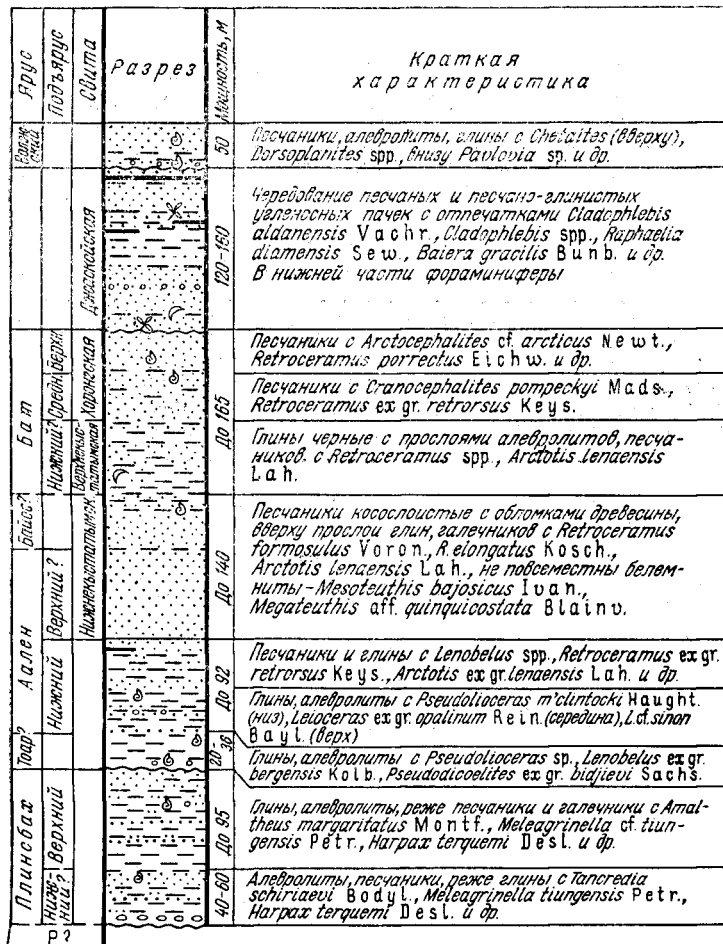 Ярус
Подъярус
Свита
Разрез
Мощность, м
Краткая
характеристика
50
Песчаники, алевролиты, глины с Chetaites (вверху),
Dorsoplanites spp., внизу Pavlovia sp. и др.
Джаскойская
120-150
Чередование песчаных и песчано-глинистых
угленосных пачек с отпечатками Cladophlebis
aldanensis Vachr., Cladophlebis spp., Raphaelia
diamensis Sew., Baiera gracilis Bunb. и др.
В нижней части фораминиферы
Бат
Верхн.
Средн.
Нижний?
Хоронгская
До 165
Песчаники с Arctocephalites cf. arcticus Newt.,
Retroceramus porrectus Eichw. и др.
Песчаники с Cranocephalites pompeckyi Mads.,
Retroceramus ex gr. retrorsus Keys.
Верхнекыс-
татымская
Глины черные с прослоями алевролитов, песча-
ников с Retroceramus spp., Arctotis lenaensis
Lah.
Байос?
Нижнекыстатымск.
До 140
Песчаники косослоистые с обломками древесины,
вверху прослои глин, галечников с Retroceramus
formosulus Voron., R. elongatus Kosch.,
Arctotis lenaensis Lah., не повсеместны белем-
ниты-Mesoteuthis bajosicus Ivan.,
Megateuthis aff. quinquicostata Blainv.
Аален
Верхний?
Нижний
До 92
Песчаники и глины с Lenobelus spp., Retroceramus ex gr.
retrorsus Keys., Arctotis ex gr. lenaensis Lah. и др.
Глины, алевролиты с Pseudolioceras m'clintocki Haught.
(низ), Leioceras ex gr. opalinum Rein. (середина), L. cf. sinon
Bayl. (верх)
Тоар?
20-36
Глины, алевролиты с Pseudolioceras sp., Lenobelus ex gr.
bergensis Kolb., Pseudodicoelites ex gr. bidjievi Sachs.
Плинсбах
Верхний
До 95
Глины, алевролиты, реже песчаники и галечники с Amal-
theus margaritatus Montf., Meleagrinella cf. tiun-
gensis Petr., Harpax terquemi Desl. и др.
Ниж-
ний?
40-60
Алевролиты, песчаники, реже глины с Tancredia
schiriaevi Bodyl., Meleagrinella tiungensis Petr.,
Harpax terquemi Desl. и др.
P?